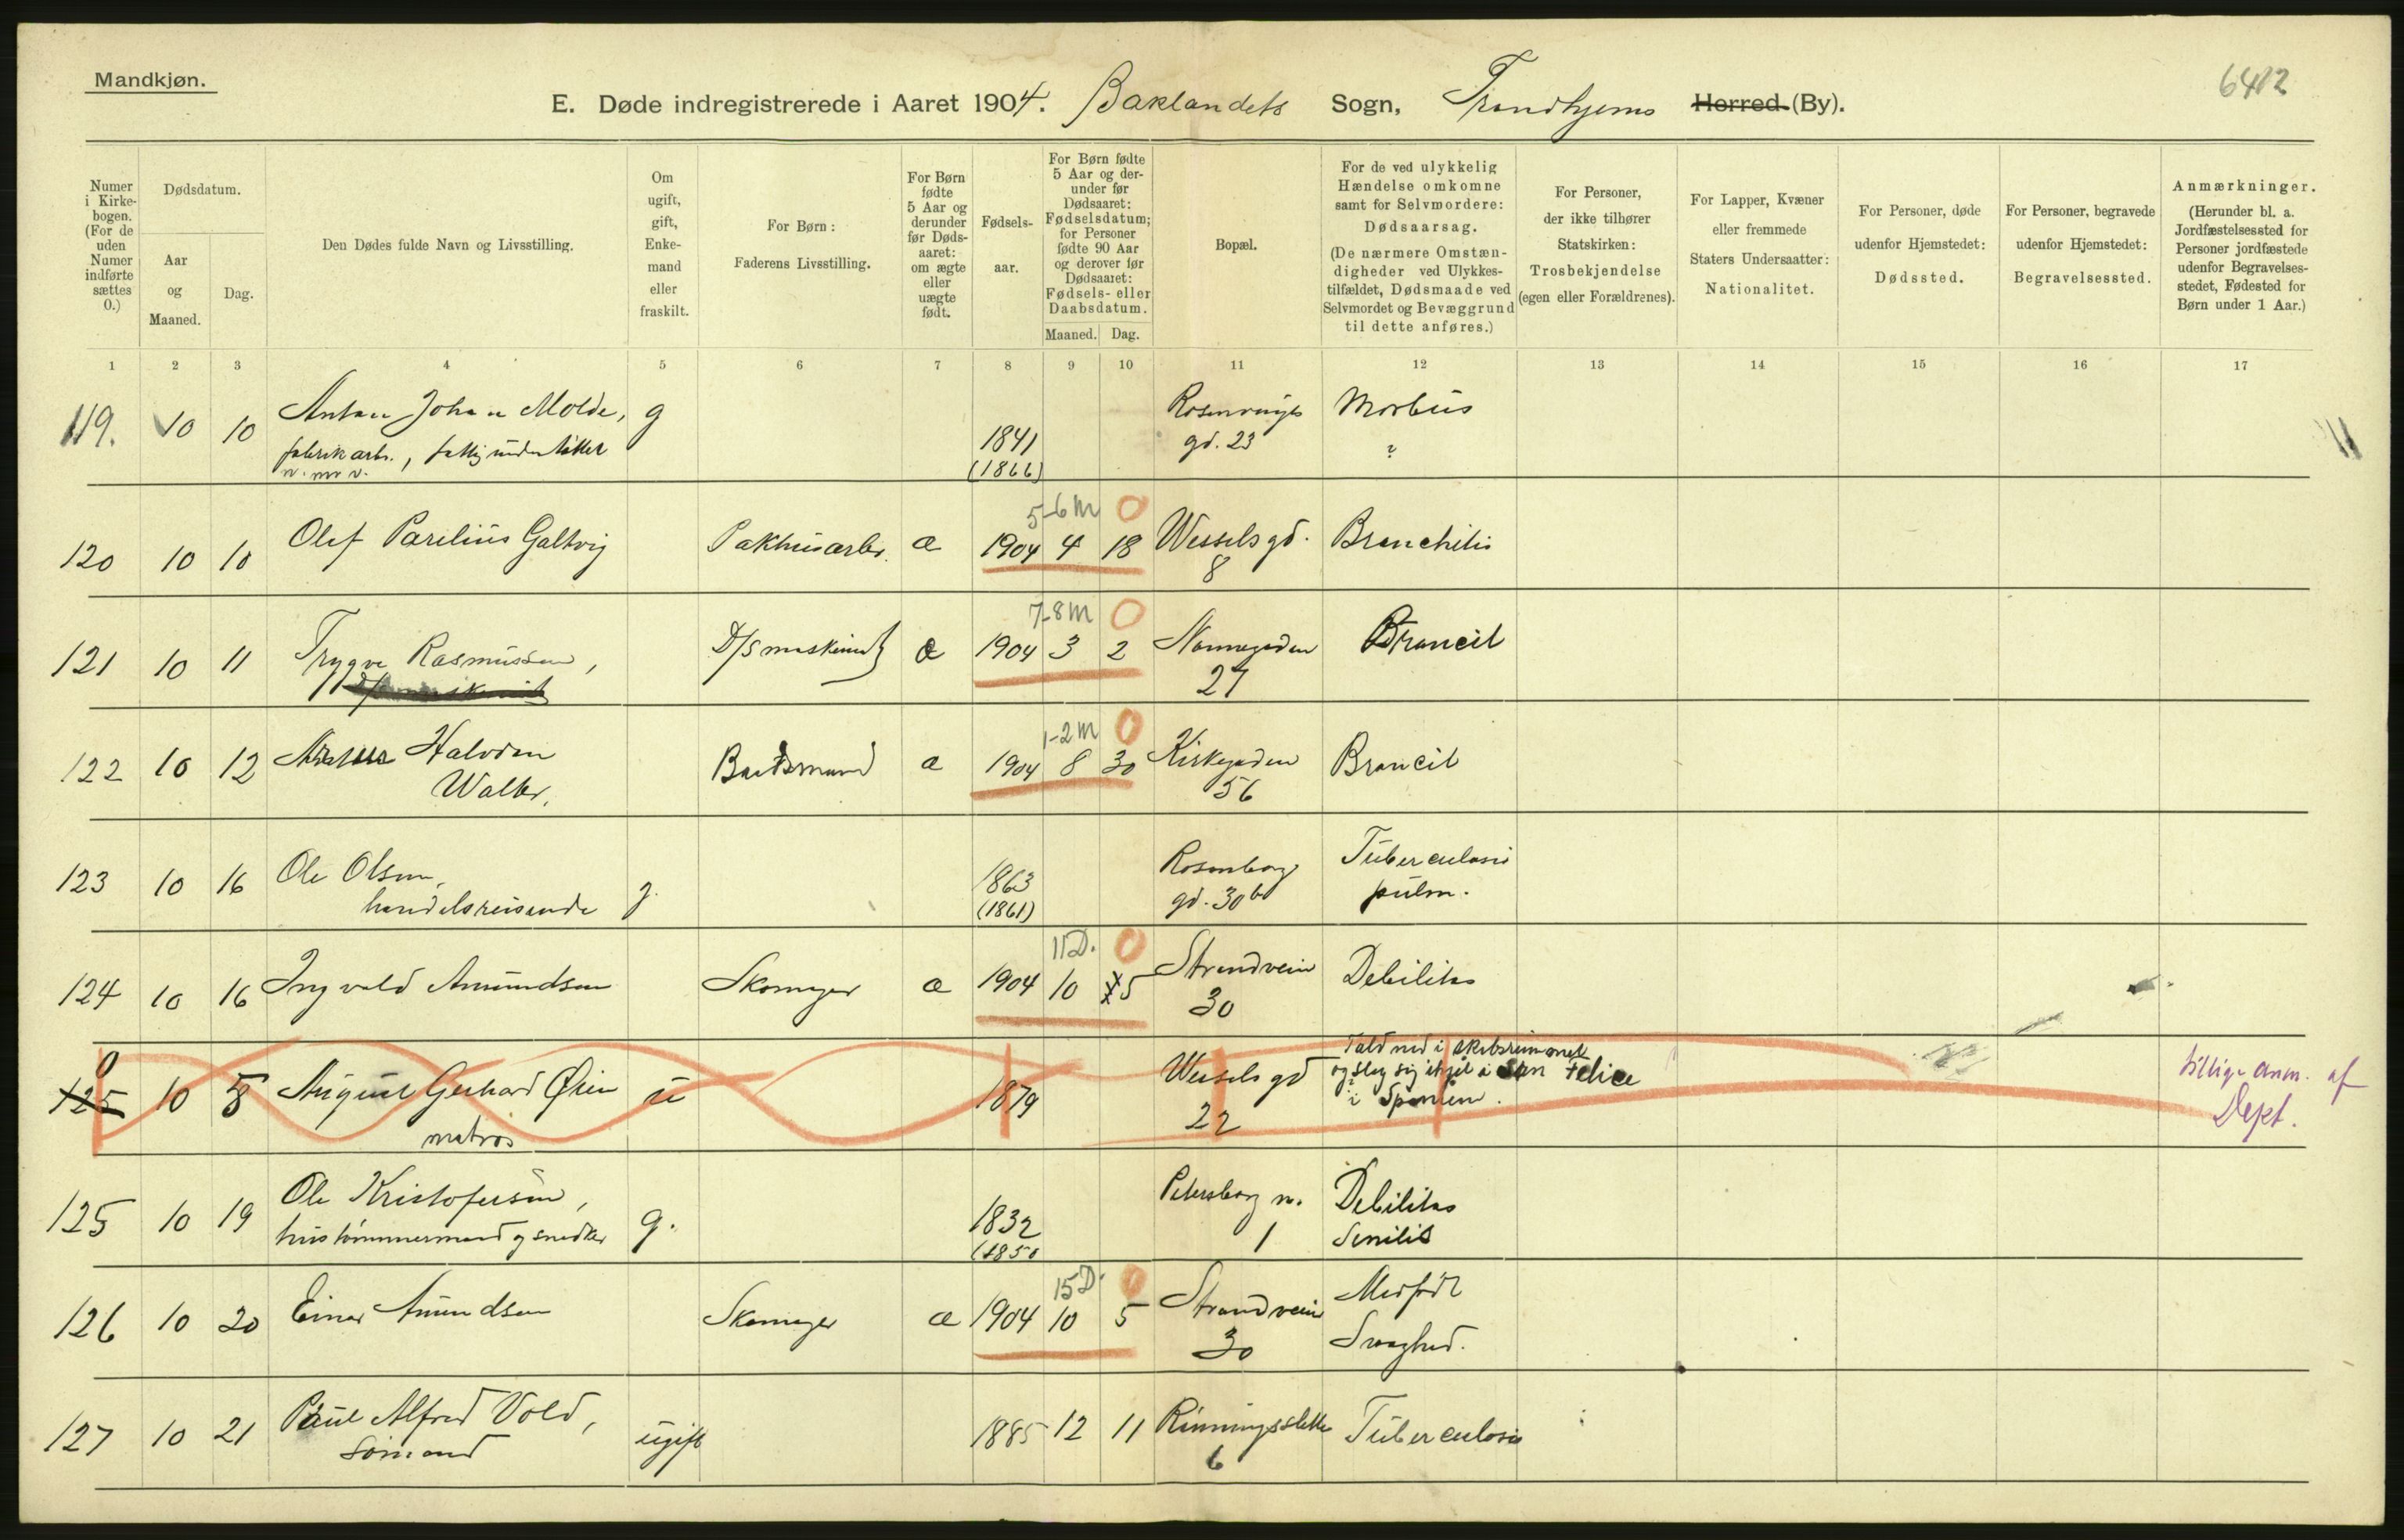 Mandkjøn.
6412
E. Døde indregistrerede i Aaret 1904. Baklandets Sogn, Trondhjems Herred (By).
Numer i Kirkebogen. (For de uden Numer indførte sættes 0.)
Dødsdatum.
Aar og Maaned.
Dag.
Den Dødes fulde Navn og Livsstilling.
Om ugift, gift, Enkemand eller fraskilt.
For Børn: Faderens Livsstilling.
For Børn fødte 5 Aar og derunder før Dødsaaret: om ægte eller uægte født.
Fødselsaar.
For Børn fødte 5 Aar og derunder før Dødsaaret: Fødselsdatum; for Personer fødte 90 Aar og derover før Dødsaaret: Fødsels- eller Daabsdatum.
Maaned. Dag.
Bopæl.
For de ved ulykkelig Hændelse omkomne samt for Selvmordere: Dødsaarsag.
(De nærmere Omstændigheder ved Ulykkestilfældet, Dødsmaade ved Selvmordet og Bevæggrund til dette anføres.)
For Personer, der ikke tilhører Statskirken: Trosbekjendelse (egen eller Forældrenes).
For Lapper, Kvæner eller fremmede Staters Undersaatter: Nationalitet.
For Personer, døde udenfor Hjemstedet: Dødssted.
For Personer, begravede udenfor Hjemstedet: Begravelsessted.
Anmærkninger.
(Herunder bl. a. Jordfæstelsessted for Personer jordfæstede udenfor Begravelsesstedet, Fødested for Børn under 1 Aar.)
1 2 3 4 5 6 7 8 9 10 11 12 13 14 15 16 17
119. 10 10 Anton Johan Molde, g 1841 Rosenvinges Morbus
fabrikarb., fattigunderstøttet (1866) gd. 23 ?
5-6 M 0
120 10 10 Olef Parelius Galtvig Pakhusarb. æ 1904 4 18 Wesselsgd. Bronchitis
8
7-8 M 0
121 10 11 Trygve Rasmussen, D/S maskinist æ 1904 3 2 Nonnegaden Broncit
27
1-2 M 0
122 10 12 Halvdan Baadsmand æ 1904 8 30 Kirkegaden Broncit
Walter. 56
123 10 16 Ole Olsen, g. 1863 Rosenborg Tuberculosis
handelsreisende (1861) gd. 30b pulm.
11 D. 0
124 10 16 Ingvald Amundsen Skomager æ 1904 10 5 Strandveien Debilitas
30
0
125 10 8 August Gerhard Øien u 1879 Wesselsgd Fald ned i skibsrummet
matros 22 og slog sig ihjel i San Felice
i Spanien.
tillige anm. af
Dept.
125 10 19 Ole Kristofersen, g. 1832 Petersborg n. Debilitas
hustømmermand og snedker (1850 1 Senilis
15 D. 0
126 10 20 Einar Amundsen Skomager æ 1904 10 5 Strandveien Medfødt
30 Svaghed.
127 10 21 Paul Alfred Vold, ugift 1885 12 11 Rønningsletten Tuberculosis
Sømand 6